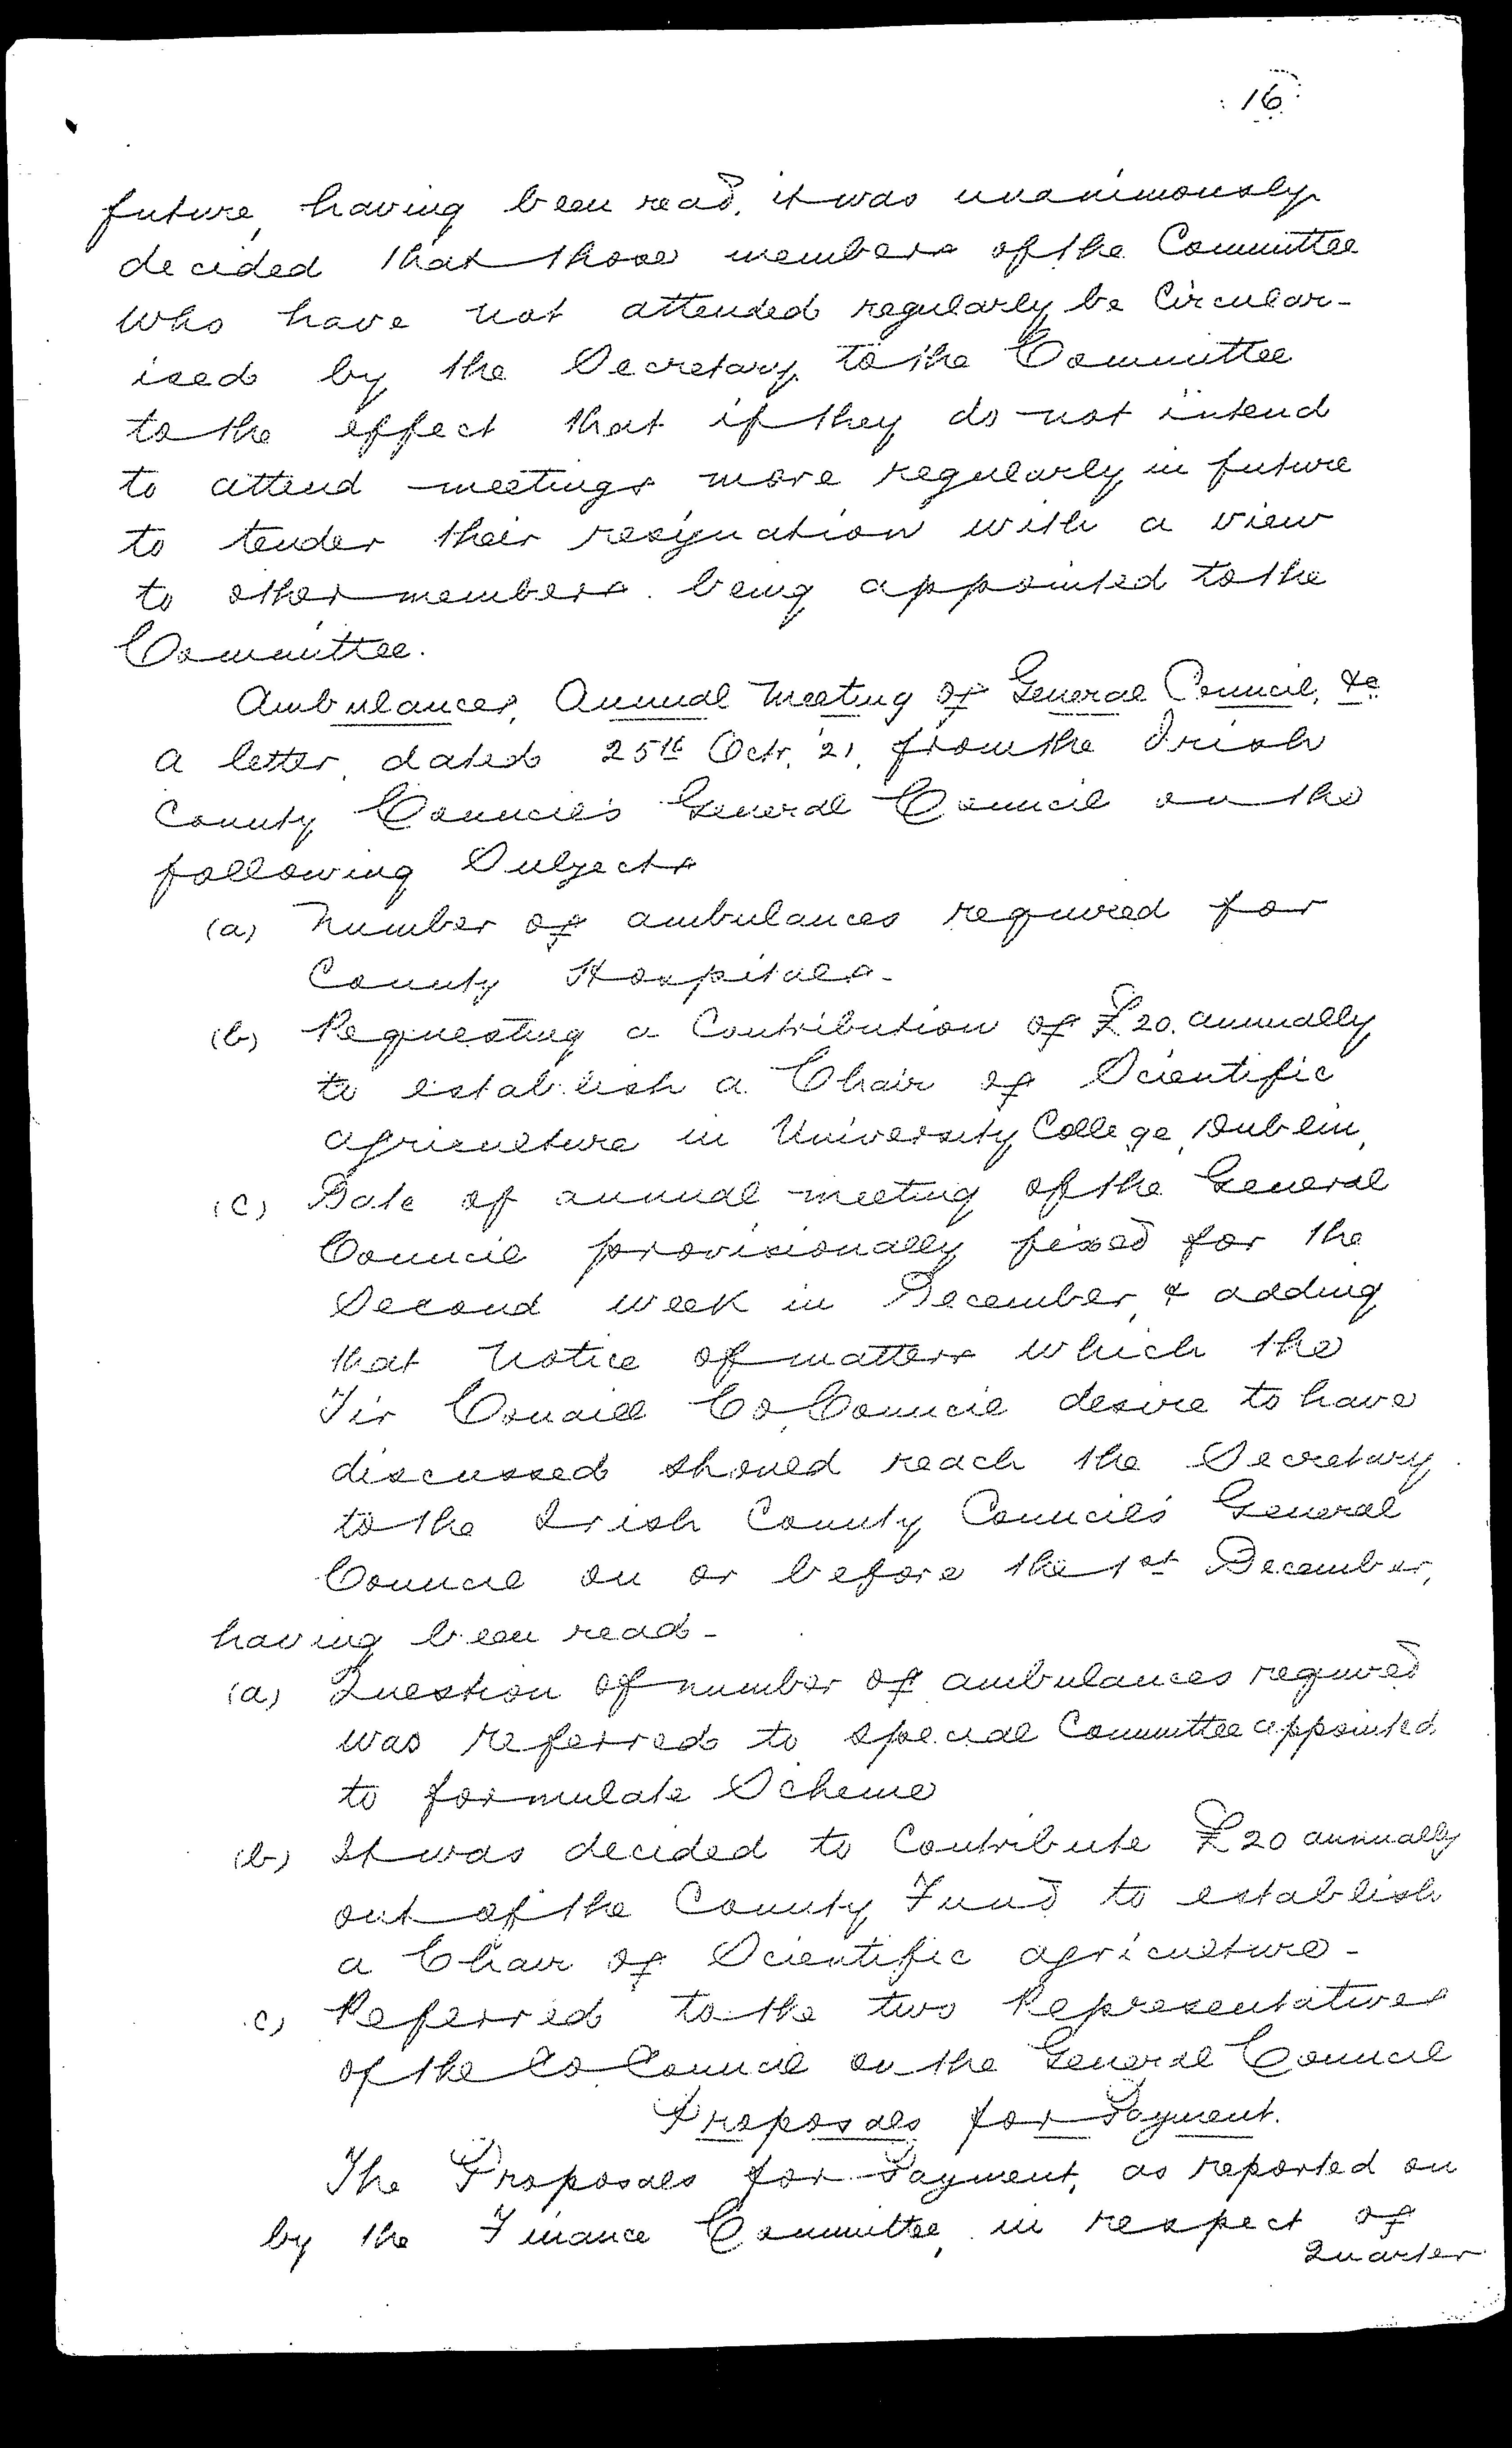 16
future, having been read, it was unanimously
decided that those members of the Committee
who have not attended regularly be Circular-
ised by the Secretary to the Committee
to the effect that if they do not intend
to attend meetings more regularly in future
to tender their resignation with a view
to other members being appointed to the
Committee.
Ambulances, Annual Meeting of General Council, &c
A letter, dated 25th Octr, '21, from the Irish
County Councils General Council on the
following Subjects
(a) Number of ambulances required for
County Hospitals-
(b) Requesting a Contribution of £20. annually
to establish a Chair of Scientific
agriculture in University College, Dublin,
(c) Date of annual meeting of the General
Council provisionally fixed for the
Second week in December, & adding
that notice of matters which the
Tir Conaill Co. Council desire to have
discussed should reach the Secretary
to the Irish County Councils General
Council on or before the 1st December,
having been read-
(a) Question of number of ambulances required
was referred to special Committee appointed
to formulate Scheme
(b) It was decided to Contribute £20 annually
out of the County Fund to establish
a Chair of Scientific agriculture-
c) Referred to the two Representatives
of the Co. Council on the General Council
Proposals for Payment.
The Proposals for Payment, as reported on
by the Finance Committee, in respect of
Quarter